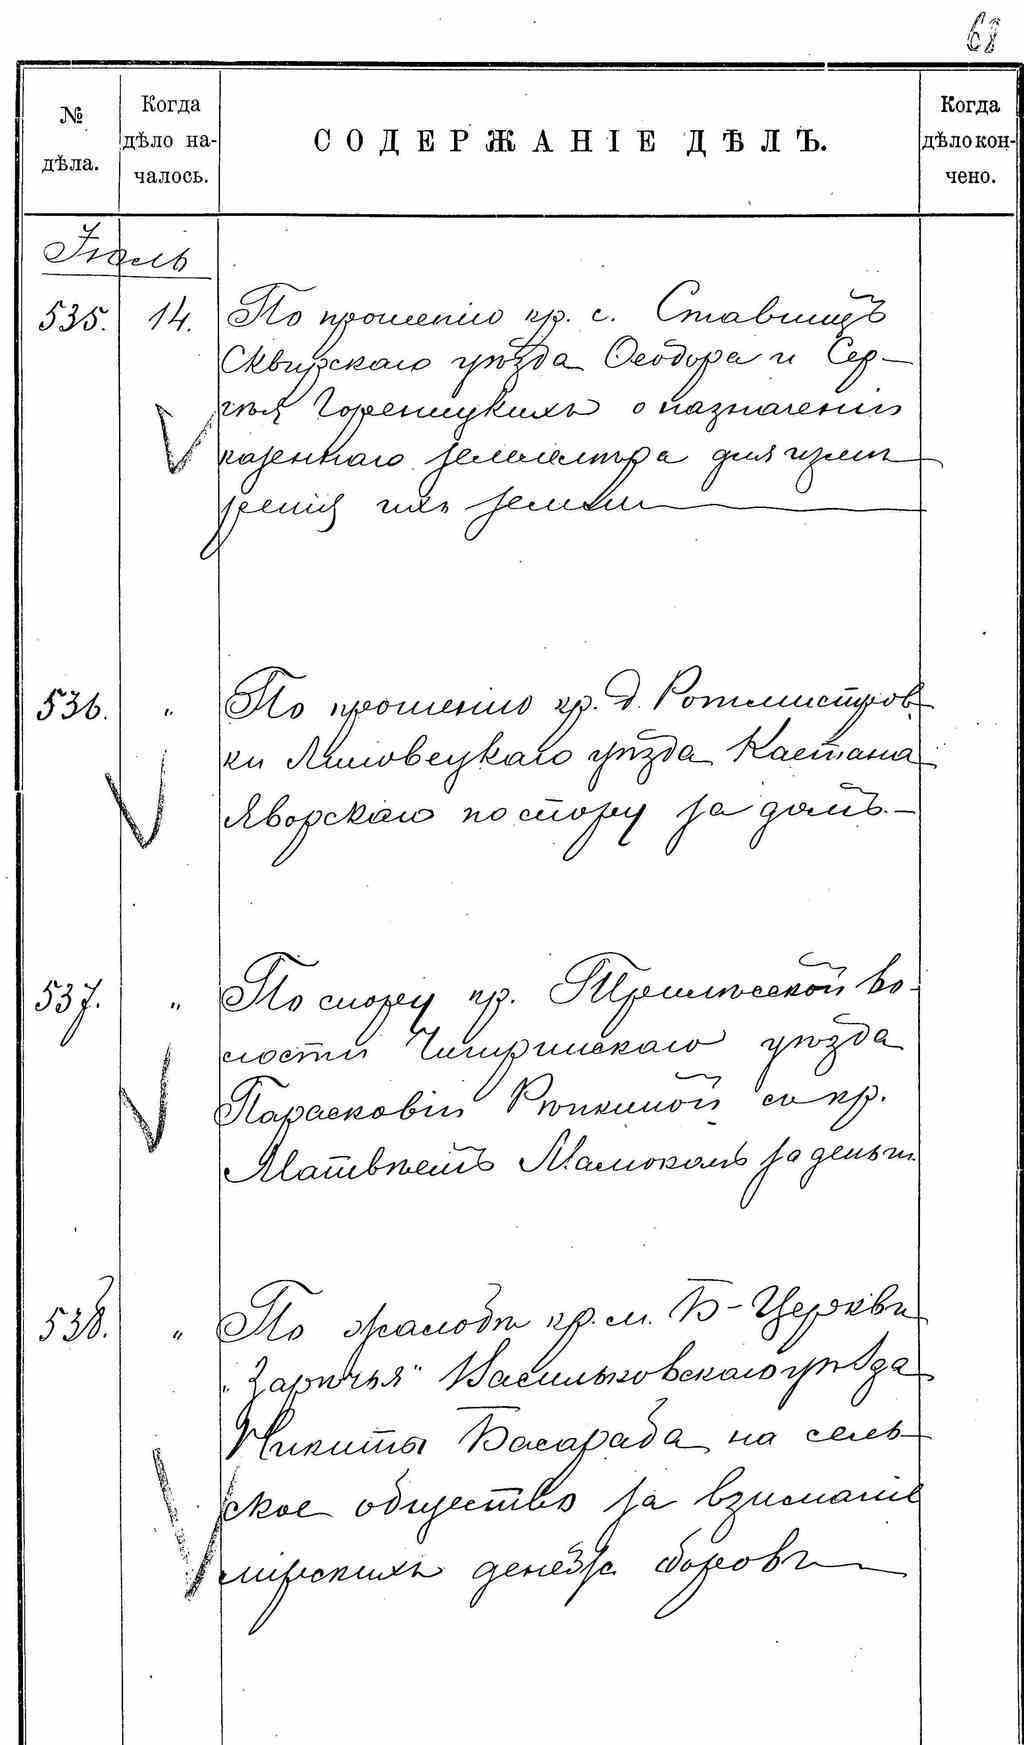 68
№ дѣла.
Когда дѣло началось.
СОДЕРЖАНІЕ ДѢЛЪ.
Когда дѣло кончено.
Іюль
535. 14. По прошенію кр. с. Ставищъ
Сквирскаго уѣзда Ѳеодора и Сер-
гѣя Гореницкихъ о назначеніи
казеннаго землемѣра для измѣ
ренія ихъ земли
536. „ По прошенію кр. д. Ротмистров
ки Липовецкаго уѣзда Каетана
Яворскаго по спору за домъ.—
537. „ По спору кр. Трилѣсской во-
лости Чигиринскаго уѣзда
Параскови Рѣпкиной съ кр.
Матвѣемъ за деньги
538. „ По жалобѣ кр. м. Б-Церкви
„Зарѣчья" Васильковскаго уѣзда
Никиты Басараба на сель
ское общество за взиманіе
мірскихъ денеж сборовъ